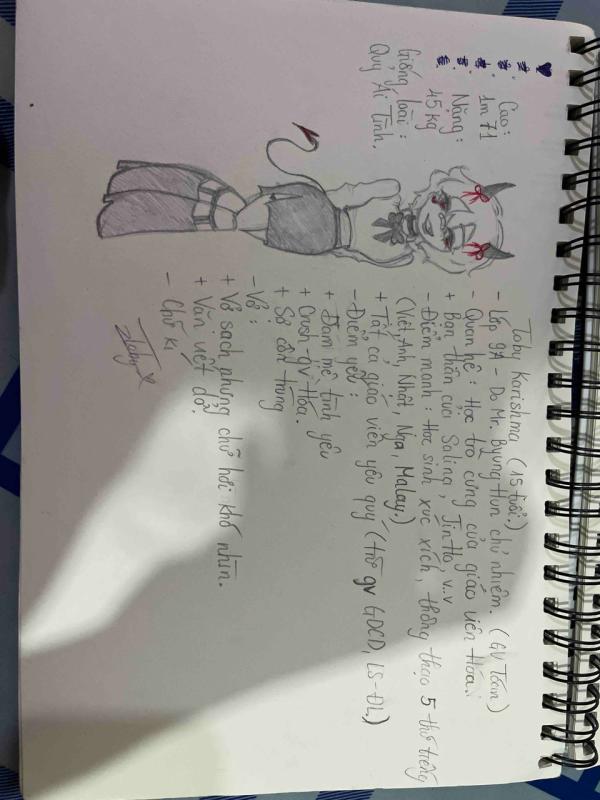 Cao:
1m71
Nặng:
45kg
Giống loài:
Quỷ Ái Tình.
Toby Karishma (15 tuổi.)
- Lớp 9A - Do Mr. Byung Hun chủ nhiệm. (GV Toán)
- Quan hệ: Học trò cưng của giáo viên Hóa.
+ Bạn thân của Saling, JinHo, v..v
- Điểm mạnh: Học sinh xúc xích, thông thạo 5 thứ tiếng
(Việt, Anh, Nhật, Nga, Malay.)
+ Tất cả giáo viên yêu quý (trừ gv GDCD, LS-ĐL)
- Điểm yếu:
+ Đam mê tình yêu
+ Crush gv Hóa.
+ Sợ côn trùng
- Vở:
+ Vở sạch nhưng chữ hơi khó nhìn.
+ Văn viết dở.
- Chữ kí